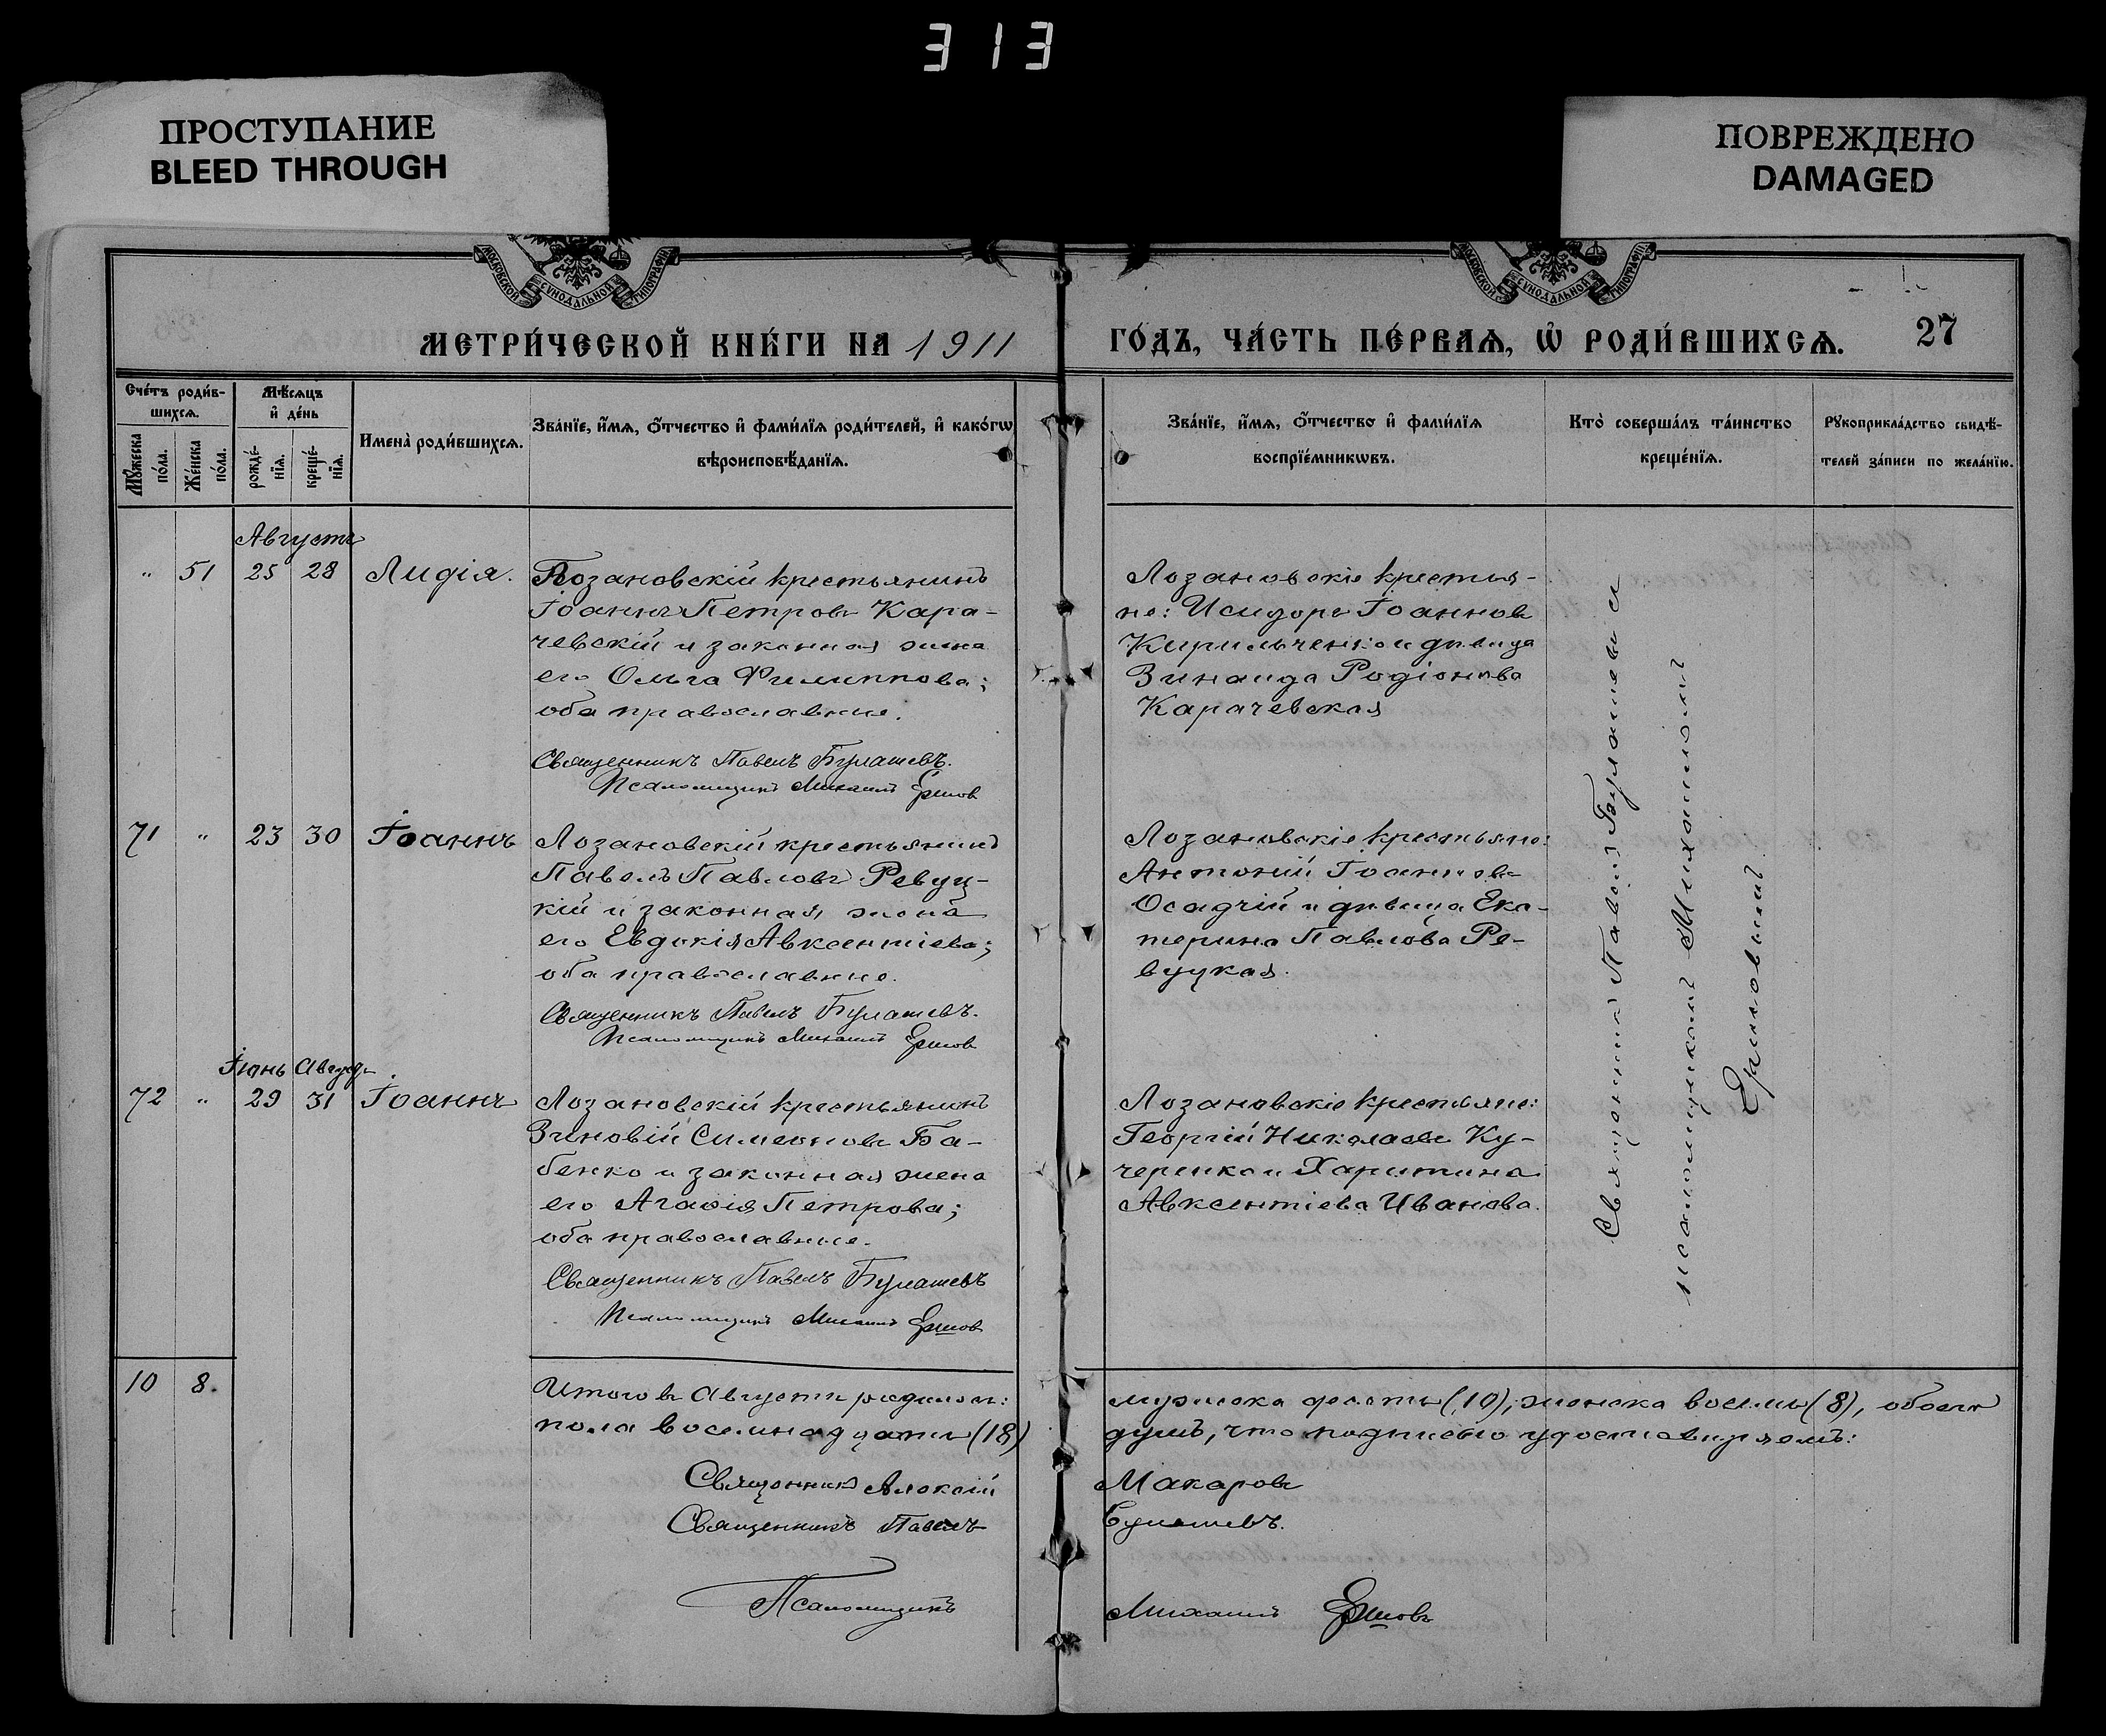 313
ПРОСТУПАНИЕ
BLEED THROUGH
ПОВРЕЖДЕНО
DAMAGED
МОСКОВСКОЙ СѴНОДАЛЬНОЙ ТИПОГРАФІИ
МОСКОВСКОЙ СѴНОДАЛЬНОЙ ТИПОГРАФІИ
МЕТРИ́ЧЕСКОЙ КНИ́ГИ НА 1911
ГО́ДЪ, ЧА́СТЬ ПЕ́РВАЯ, Ѡ РОДИ́ВШИХСЯ.
27
Сче́тъ роди́в-
шихся.
Мꙋжеска
по́ла.
Же́нска
по́ла.
Мѣ́сяцъ
и де́нь
рожде́-
нїя.
креще́-
нїя.
Имена̀ роди́вшихся.
Зва́нїе, и́мя, ѻ́тчество и фами́лїя роди́телей, и како́гѡ
вѣроисповѣ́данїя.
Зва́нїе, и́мя, ѻ́тчество и фами́лїя
воспрїе́мникѡвъ.
Кто̀ соверша́лъ та́инство
креще́нїя.
Рꙋкоприкла́дство свидѣ́-
телей за́писи по жела́нїю.
Августъ
" 51 25 28 Лидія.
Лозановскій крестьянинъ
Іоаннъ Петровъ Кара-
чевскій и законная жена
его Ольга Филиппова;
оба православные.
Священникъ Павелъ Булашевъ.
Псаломщикъ Михаилъ Ершов
Лозановскіе крестья-
не: Исидоръ Іоанновъ
Кирильченко и дѣвица
Зинаида Родіонова
Карачевская
71 " 23 30 Іоаннъ
Лозановскій крестьянинъ
Павелъ Павловъ Ревуц-
кій и законная жена
его Евдокія Авксентіева;
оба православные.
Священникъ Павелъ Булашевъ.
Псаломщикъ Михаилъ Ершов
Лозановскіе крестьяне:
Антоній Іоанновъ
Осадчій и дѣвица Ека-
терина Павлова Ре-
вуцкая.
Іюнь Август
72 " 29 31 Іоаннъ
Лозановскій крестьянинъ
Зиновій Симеоновъ Ба-
бенко и законная жена
его Агафія Петрова;
оба православные.
Священникъ Павелъ Булашевъ
Псаломщикъ Михаилъ Ершов
Лозановскіе крестьяне:
Георгій Николаевъ Ку-
черенко и Харитина
Авксентіева Иванова.
Священникъ Павелъ Булашевъ и
псаломщикомъ Михаиломъ
Ершовымъ
10 8.
Итого въ Августѣ родилось:
мужеска десять (10), женска восемь (8), обоего
пола восемнадцать (18)
душъ, что подписью удостовѣряемъ:
Священникъ Алексій Макаровъ
Священникъ Павелъ Булашевъ.
Псаломщикъ Михаилъ Ершовъ